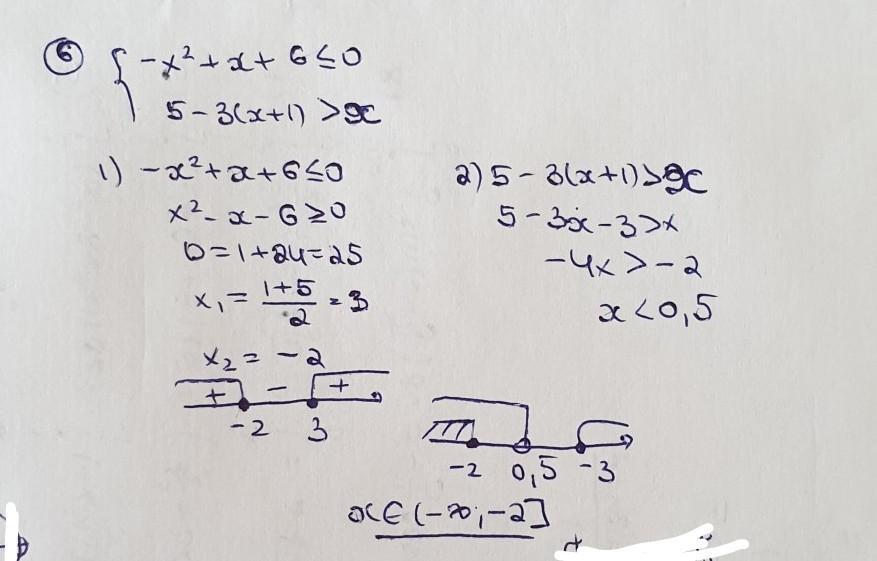 6 { -x² + x + 6 ≤ 0
5 - 3(x+1) > x
1) -x² + x + 6 ≤ 0
x² - x - 6 ≥ 0
D = 1 + 24 = 25
x₁ = (1+5)/2 = 3
x₂ = -2
+ - +
-2 3
2) 5 - 3(x+1) > x
5 - 3x - 3 > x
-4x > -2
x < 0,5
-2 0,5 -3
x ∈ (-∞; -2]